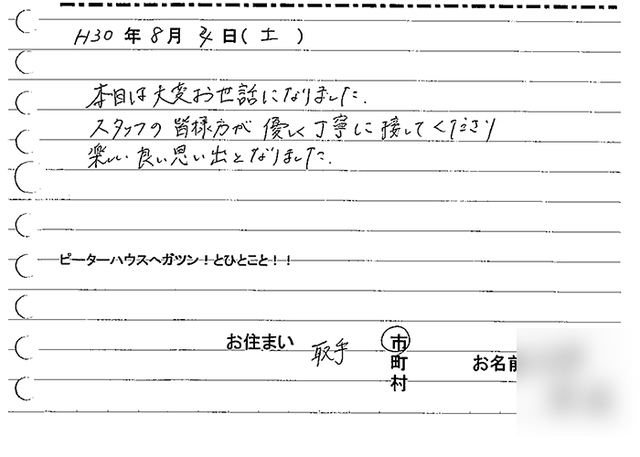 H30 年 8 月 4 日( 土 )
本日は大変お世話になりました.
スタッフの皆様方が優しく丁寧に接してくださり
楽しい良い思い出となりました.
ピーターハウスへガツン！とひとこと！！
お住まい 取手 市 お名前
町
村